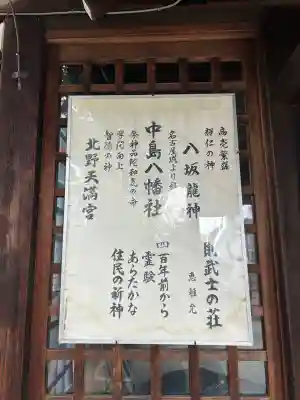 商売繁盛
輝仁の神
八坂龍神
名古屋城より
中島八幡社
学問向上
智徳の神
北野天満宮
武士の荘
四百年前から
霊験
あらたかな
住民の祈神